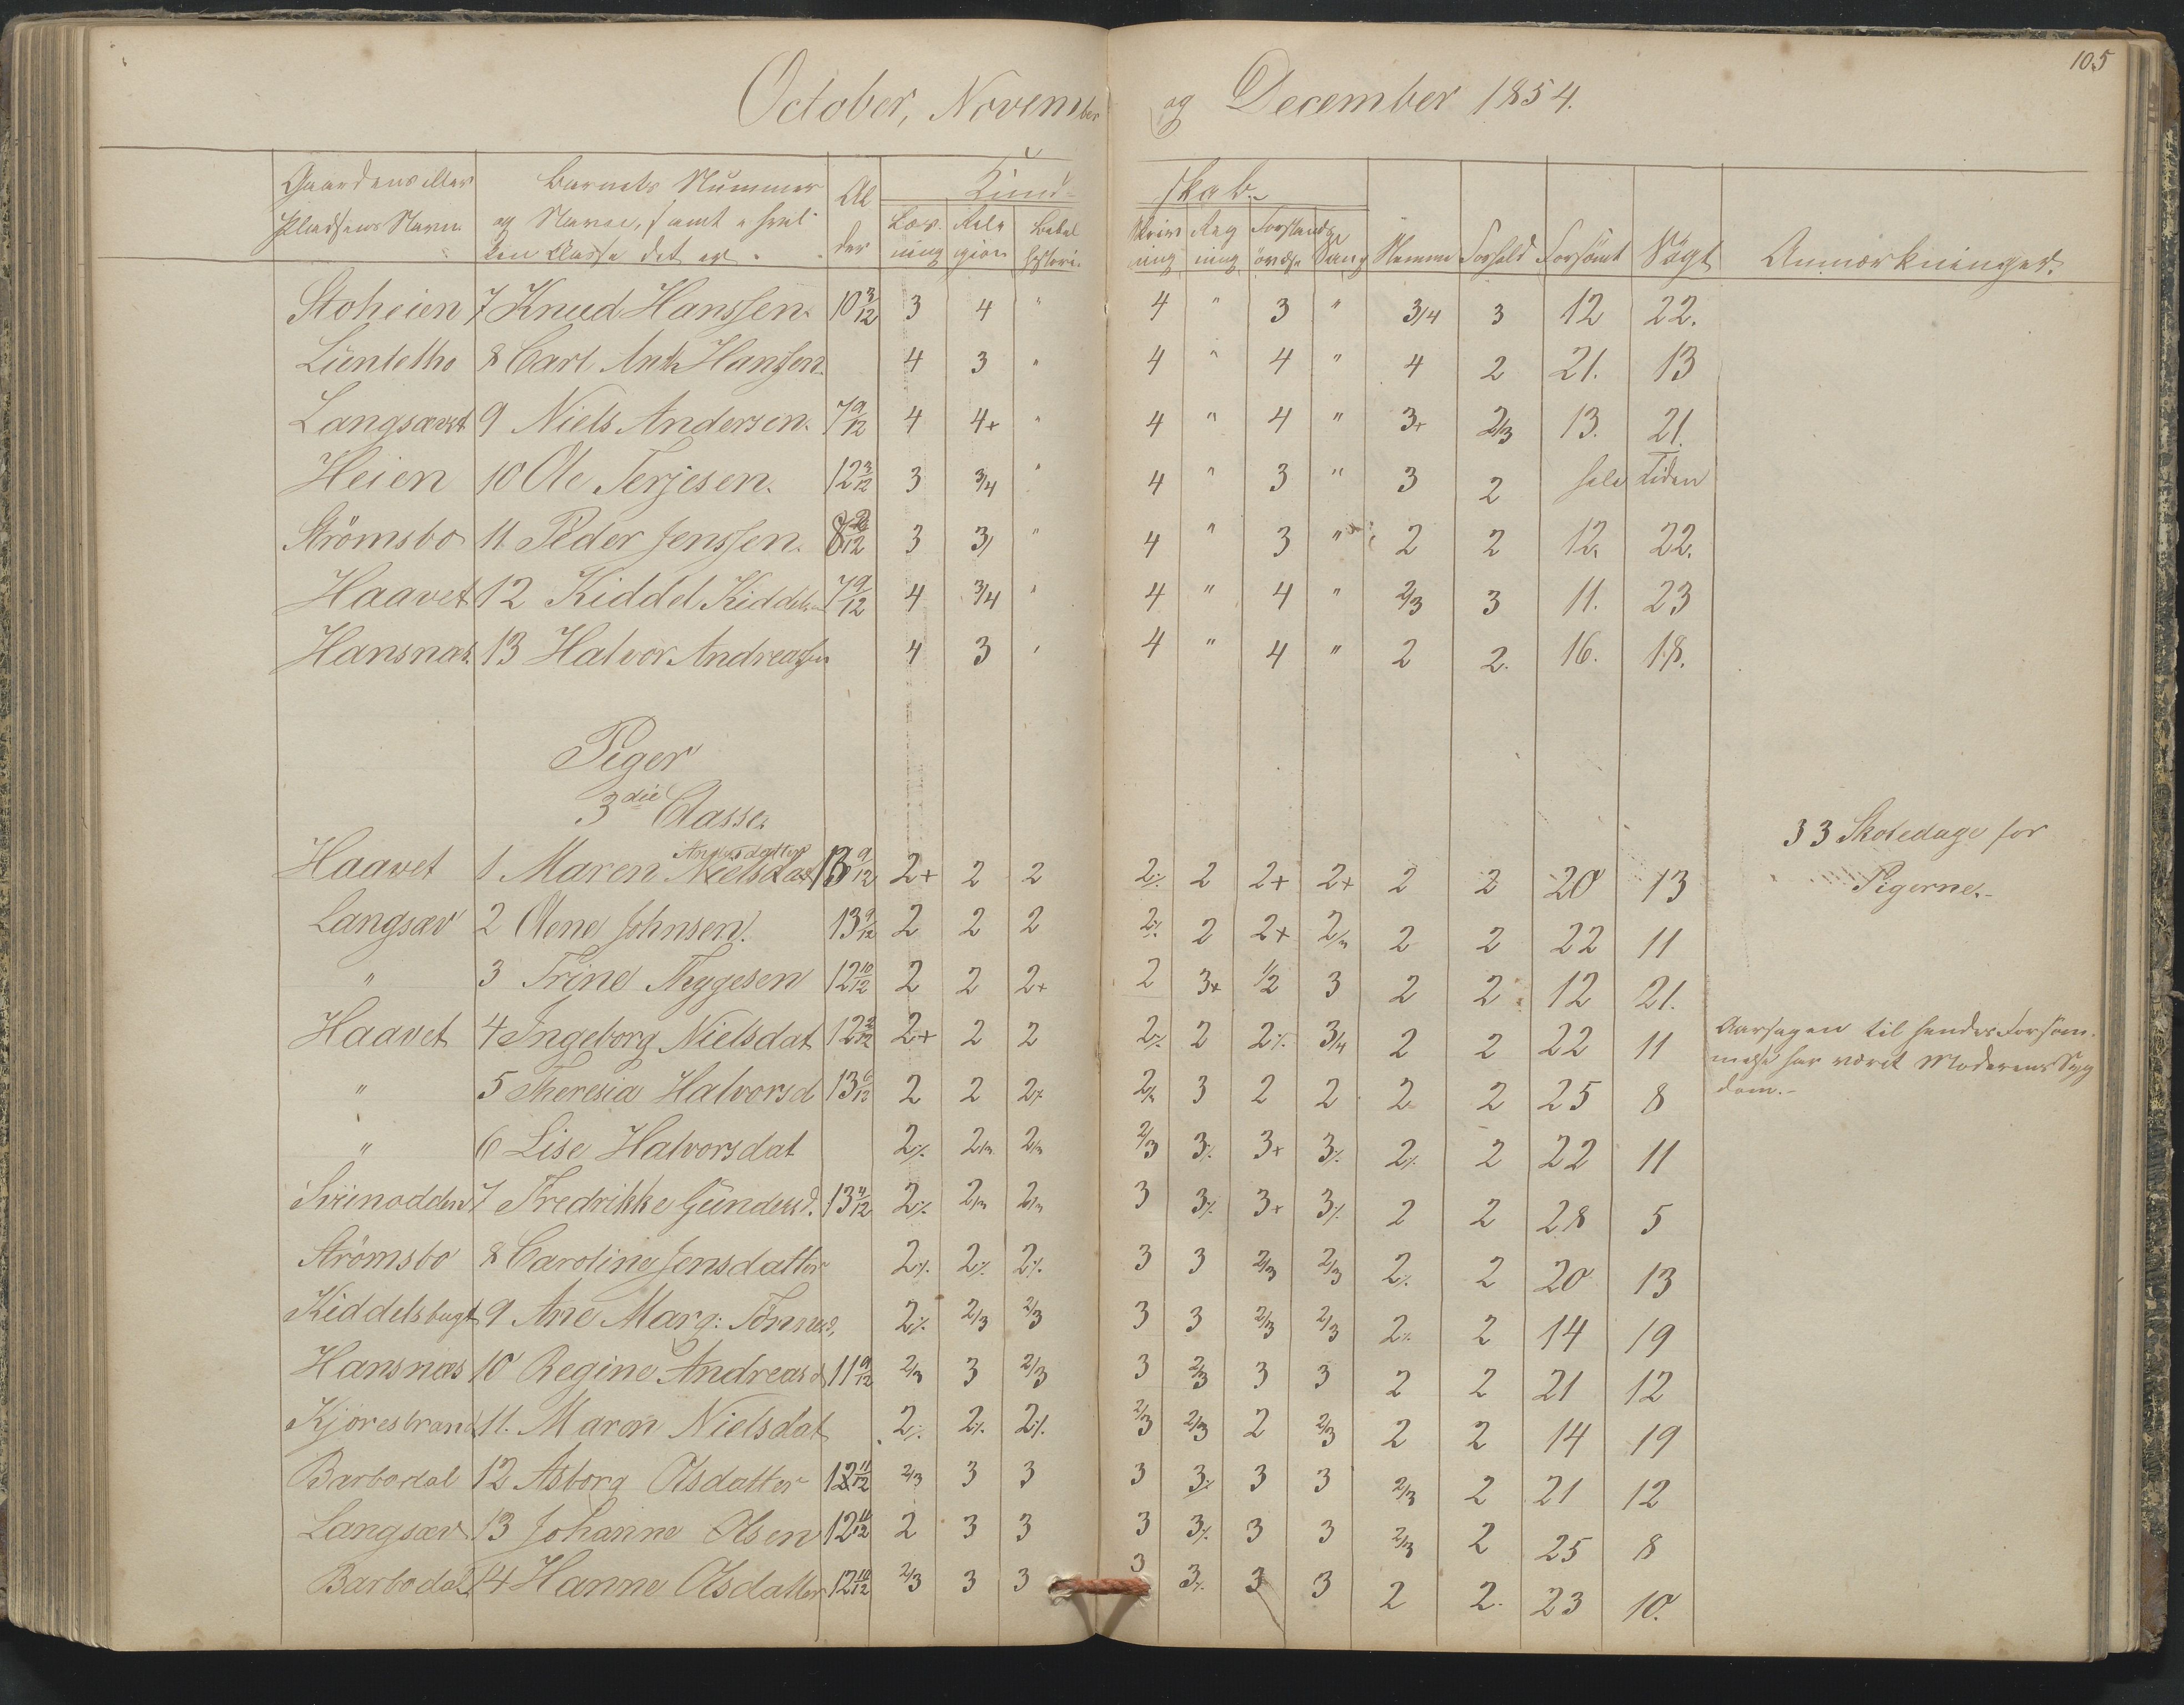 105
October, November og December 1854.
Gaardens eller Pladsens Navn
Barnets Nummer og Navn, samt i hvilken Classe det er.
Alder
Kundskab.
Læsning Religion Bibelhistorie Skrivning Regning Forstandsøvelse Sang Nemme Forhold Forsömt Sögt Anmærkninger.
Stoheien 7 Knud Hanssen. 10 3/12 3 4 " 4 " 3 " 3/4 3 12 22.
8 Carl Anth Hanssen. 4 3 " 4 " 4 " 4 2 21. 13
Langsævet 9 Niels Andersen. 7 9/12 4 4+ " 4 " 4 " 3+ 2/3 13. 21.
Heien 10 Ole Terjesen. 12 3/12 3 3/4 " 4 " 3 " 3 2 hele Tiden
Strömsbo 11 Peder Jenssen. 3 3/ " 4 " 3 " 2 2 12. 22.
Haavet 12 Kiddel Kiddelsen 7 9/12 4 3/4 " 4 " 4 " 2/3 3 11. 23
Hansnæs 13 Halvor Andreassen 4 3 " 4 " 4 " 2 2. 16. 18.
Piger
3die Classe.
33 Skoledage for Pigerne.-
Haavet 1 Maren Nielsdat 13 9/12 2+ 2 2 2% 2 2+ 2+ 2 2 20 13
Langsæv 2 Olene Johnsen. 13 9/12 2 2 2 2% 2 2+ 2/3 2 2 22 11
" 3 Trine Thygesen 12 10/12 2 2 2+ 2 3+ 1/2 3 2 2 12 21.
Haavet 4 Ingeborg Nielsdat 12 2/12 2+ 2 2 2% 2 2% 3/4 2 2 22 11 Aarsagen til hendes Forsömmelse har været Moderens Sygdom.-
" 5 Theresia Halvorsd 13 6/12 2 2 2+ 2/3 3 2 2 2 2 25 8
" 6 Lise Halvorsdat 2% 2/3 2/3 2/3 3% 3+ 3% 2% 2 22 11
Sviinodden 7 Fredrikke Gundersd. 13 4/12 2% 2/3 2/3 3 3% 3+ 3% 2 2 28 5
Strömsbo 8 Caroline Jensdatter 2% 2% 2% 3 3 2/3 2/3 2% 2 20 13
Kiddelsbugt 9 Ane Marg: Tönnesd. 2% 2/3 2/3 3 3 2/3 2/3 2% 2 14 19
Hansnæs 10 Regine Andreasd 11 9/12 2/3 3 2/3 3 2/3 3 3 2 2 21 12
Kjöresbrand 11. Maren Nielsdat 2% 2% 2% 2/3 2/3 2 2/3 2 2 14 19
Barbodal 12 Asborg Olsdatter 12 11/12 2/3 3 3 3 3% 3 3 2/3 2 21 12
Langsæv 13 Johanne Olsen 12 11/12 2 3 3 3 3% 3 3 2/3 2 25 8
Barbodal 14 Hanne Olsdatter 12 10/12 2/3 3 3 3 3% 3 3 2 2. 23 10.